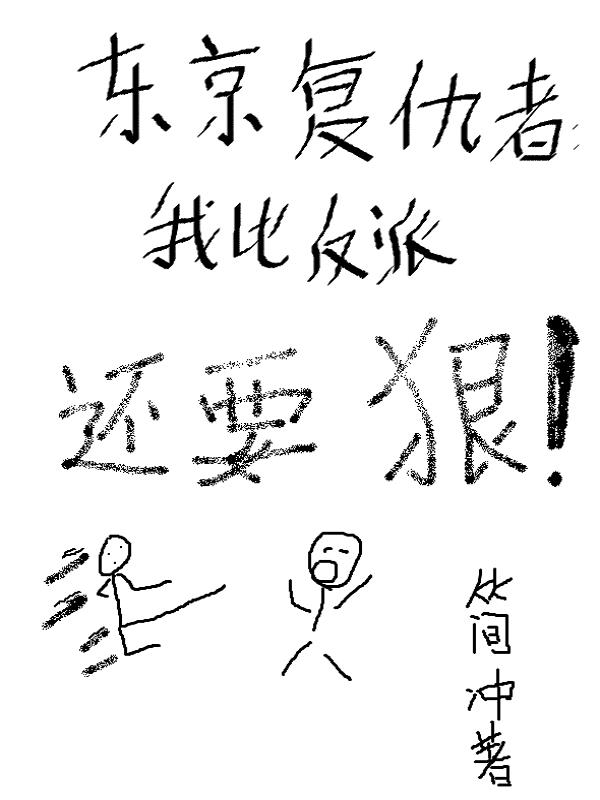 东京复仇者:
我比反派
还要狠!
简冲著